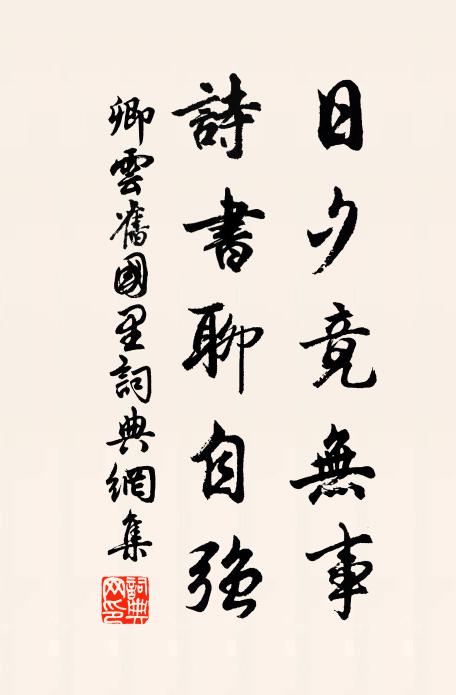 日夕竟無事
詩書聊自強
卿雲舊國里詞典網集
詞典
网印